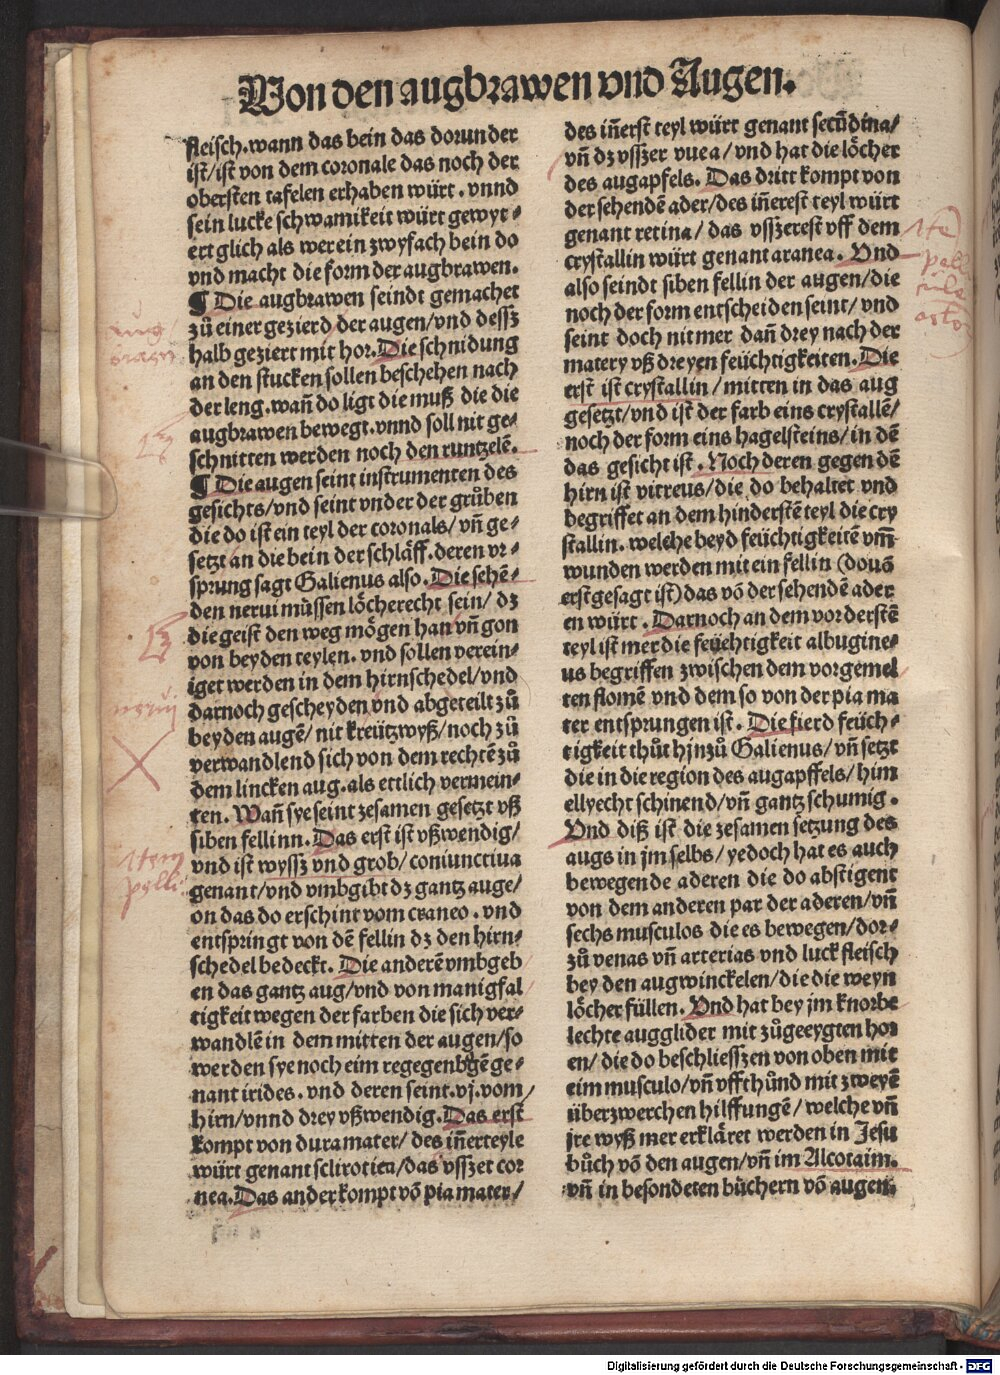 Von den augbrawen vnd Augen.
fleisch.wann das bein das dorunder
ist/ist von dem coronale das noch der
obersten tafelen erhaben würt.vnnd
sein lucke schwamikeit würt gewyt⸗
ert glich als wer ein zwyfach bein do
vnd macht die form der augbrawen.
¶ Die augbrawen seindt gemachet
zů einer gezierd der augen/vnd dessz
halb geziert mit hor.Die schnidung
an den stucken sollen beschehen nach
der leng.wañ do ligt die muß die die
augbrawen bewegt.vnnd soll nit ge⸗
schnitten werden noch den runtzelē.
¶ Die augen seint instrumenten des
gesichts/vnd seint vnder der grůben
die do ist ein teyl der coronals/vñ ge⸗
setzt an die bein der schläff.deren vr⸗
sprung sagt Galienus also.Die sehē⸗
den nerui müssen löcherecht sein/dz
die geist den weg mögen han vñ gon
von beyden teylen.vnd sollen verein⸗
iget werden in dem hirnschedel/vnd
darnoch gescheyden vnd abgeteilt zů
beyden augē/nit kreützwyß/noch zů
verwandlend sich von dem rechtē zů
dem lincken aug.als ettlich vermein⸗
ten.Wañ sye seint zesamen gesetzt vß
siben fellinn.Das erst ist vßwendig/
vnd ist wyssz vnd grob/coniunctiua
genant/vnd vmbgibt dz gantz auge/
on das do erschint vom craneo.vnd
entspringt von dē fellin dz den hirn⸗
schedel bedeckt.Die anderē vmbgeb
en das gantz aug/vnd von manigfal
tigkeit wegen der farben die sich ver⸗
wandlē in dem mitten der augen/so
werden sye noch eim regegenbgē ge⸗
nant irides.vnd deren seint.vj.vom
hirn/vnnd drey vßwendig.Das erst
kompt von dura mater/des iñer teyle
würt genant sclirotica/das vsszet cor
nea.Das ander kompt vō pia mater/
des iñerst teyl würt genant secūdina/
vñ dz vsszer vuea/vnd hat die löcher
des augapfels.Das dritt kompt von
der sehendē ader/des iñerest teyl würt
genant retina/das vsszerest vff dem
crystallin würt genant aranea.Vnd
also seindt siben fellin der augen/die
noch der form entscheiden seint/vnd
seint doch nit mer dañ drey nach der
matery vß dreyen feüchtigkeiten.Die
erst ist crystallin/mitten in das aug
gesetzt/vnd ist der farb eins crystallē/
noch der form eins hagelsteins/in dē
das gesicht ist.Noch deren gegen dē
hirn ist vitreus/die do behaltet vnd
begriffet an dem hinderstē teyl die cry
stallin.welche beyd feüchtigkeitē vm̄
wunden werden mit ein fellin (douō
erst gesagt ist) das vō der sehendē ader
en würt.Darnoch an dem vorderstē
teyl ist mer die feüchtigkeit albugine⸗
us begriffen zwischen dem vorgemel
ten flomē vnd dem so von der pia ma
ter entsprungen ist.Die fierd feüch⸗
tigkeit thůt hjnzů Galienus/vñ setzt
die in die region des augapffels/him
ellyecht schinend/vñ gantz schumig.
Vnd diß ist die zesamen setzung des
augs in jm selbs/yedoch hat es auch
bewegende aderen die do abstigent
von dem anderen par der aderen/vñ
sechs musculos die es bewegen/dor⸗
zů venas vñ arterias vnd luck fleisch
bey den augwinckelen/die die weyn
löcher füllen.Vnd hat bey jm knorbe
lechte augglider mit zůgeeygten hor
en/die do beschliesszen von oben mit
eim musculo/vñ vffthůnd mit zweyē
überzwerchen hilffungē/welche vñ
jre wyß mer erkläret werden in Jesu
bůch vō den augen/vñ im Alcotaim.
vñ in besondeten büchern vō augen.
neruij
Digitalisierung gefördert durch die Deutsche Forschungsgemeinschaft - DFG